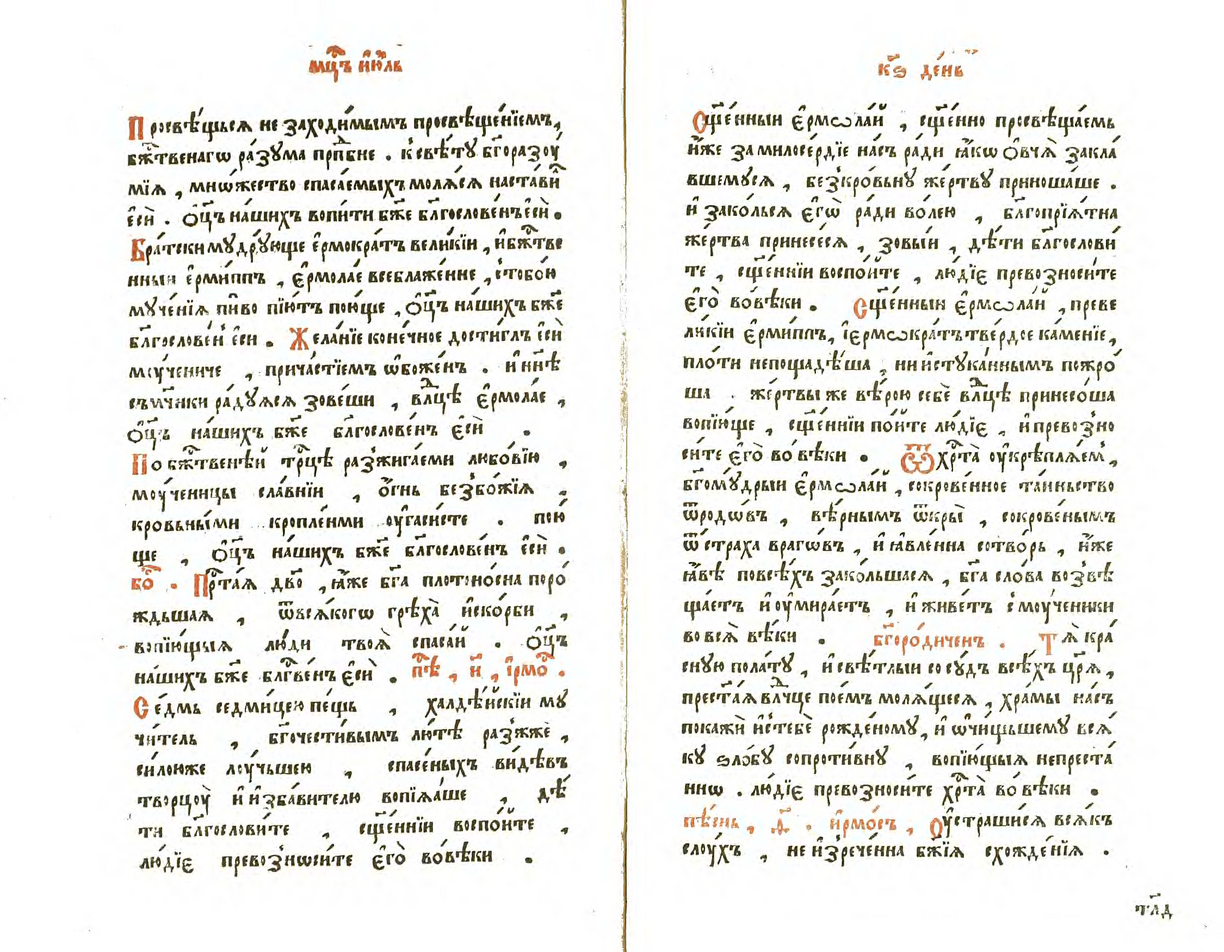 мц҇ъ и҆ю́ль
Просвѣ́щься не заходи́мымъ просвѣще́нїемъ,
бж҇твенагѡ ра́зума прп҇бне . к̾свѣ́ту бг҃оразоу
мїѧ , мнѡ́жество спаса́емыхъ молѧ́сѧ наста́ви
є҆сѝ . Ѻ҆ц҃ъ на́шихъ вопи́ти бж҃е блг҇ослове́нъ є҆сѝ .
Бра́тски му́дрꙋюще є҆рмокра́тъ вели́кїи , и҆ бж҇тве
нныи є҆рми́ппъ , є҆рмола́е всебла́женне , с̾тобо́ю
мꙋче́нїѧ пи́во пїю́тъ пою́ще , Ѻ҆ц҃ъ на́шихъ бж҃е
блг҇ослове́н є҆си . Жела́нїе коне́чное дости́глъ є҆сѝ
моу́чениче , прича́стїемъ ѡ҆бо́женъ . и҆ нн҃ѣ
съ мч҃ники ра́дꙋѧсѧ зове́ши , влⷣцѣ є҆рмола́е ,
Ѻ҆ц҃ъ на́шихъ бж҃е блг҇ослове́нъ є҆сѝ .
По бж҇твенѣ́й трⷪ҇цѣ раз̾жига́еми любо́вїю ,
моу́ченицы сла́внїи , ѻ҆́гнь без̾бо́жїѧ ,
кровьны́ми кропле́нми оу҆гаси́сте . пою
ще , Ѻ҆ц҃ъ на́шихъ бж҃е блг҇ослове́нъ є҆сѝ .
бо҇ . Прⷭ҇таѧ дв҃о , ꙗ҆́же бг҃а плотоно́сна поро
ждьшаѧ , ѿ всѧ́когѡ грѣха̀ и҆ско́рби ,
вопїю́щыѧ лю́ди твоѧ̀ спаса́й . Ѻ҆ц҃ъ
на́шихъ бж҃е блг҇ве́нъ є҆сѝ . пѣ҇ , и҃ , і҆рмо҇ .
Се́дмь седми́цею пе́щь , халдѣ́йскїи мꙋ
чи́тель , бг҃очести́вымъ лю́тѣ раз̾жже ,
си́лою же лоу́чьшею , спасе́ныхъ ви́дѣвъ
творцоу̀ и҆ и҆зба́вителю вопїѧ́ше , дѣ́
ти блг҇ослови́те , сщ҃е́ннїи воспо́йте ,
лю́дїє превоз̾нѡси́те є҆го̀ во́ вѣки .
к҃ѕ де́нь
Сщ҃е́нныи є҆рмѡла́й , сщ҃е́нно просвѣща́емь
и҆́же за милосе́рдїе на́съ ра́ди ꙗ҆́кѡ ѻ҆вчѧ̀ закла́
вшемꙋсѧ , без̾кро́вьнꙋ же́ртвꙋ приноша́ше .
и҆ зако́льсѧ є҆гѡ̀ ра́ди во́лею , благопрїѧ́тна
же́ртва принесе́сѧ , зовы́и , дѣ́ти блг҇ослови́
те , сщ҃е́ннїи воспо́йте , лю́дїє превозноси́те
є҆го̀ во́ вѣки . Сщ҃е́нныи є҆рмѡла́й , преве
ли́кїи є҆рми́ппъ, і҆є҆рмѡкра́тъ тве́рдое ка́менїе,
пло́ти непощадѣ́ша , ни и҆стꙋка́ннымъ пожро́
ша . же́ртвы же вѣ́рою себѐ влⷣцѣ принесо́ша
вопїю́ще , сщ҃е́ннїи по́йте лю́дїє , и҆ превоз̾но
си́те є҆го̀ во́ вѣки . Ѿ хрⷭ҇та̀ оу҆крѣплѧ́ем̾,
бг҃омꙋ́дрыи є҆рмѡла́й , сокрове́нное та́иньство
ѿ родѡ́въ , вѣ́рнымъ ѿкры̀ , сокрове́нымъ
ѿ стра́ха врагѡ́въ , и҆ ꙗ҆вле́нна сотво́рь , и҆́же
ꙗ҆́вѣ по всѣ́хъ зако́лшасѧ , бг҃а сло́ва воз̾вѣ
ща́етъ и҆ оу҆мира́етъ , и҆ живе́тъ с̾ моу́ченики
во всѧ̀ вѣ́ки . бг҃оро́диченъ . Тѧ̀ кра́
снꙋю пола́тꙋ , и҆ свѣ́тлыи сосꙋ́дъ всѣ́хъ цр҃ѧ̀,
прест҃а́ѧ влⷣчце пое́мъ молѧ́щесѧ , хра́мы на́съ
покажѝ и҆с̾ тебѐ рожде́номꙋ, и҆ ѡ҆чи́щьшемꙋ всѧ́
кꙋ ѕло́бꙋ сопроти́внꙋ , вопїю́щыѧ непреста́
ннѡ . лю́дїє превозноси́те хрⷭ҇та̀ во́ вѣки .
пѣ́снь , ѳ҃ . и҆рмо́съ , Оу҆страши́сѧ всѧ́къ
слоу́хъ , не и҆з̾рече́нна бж҃їѧ схожде́нїѧ .
тл҃д